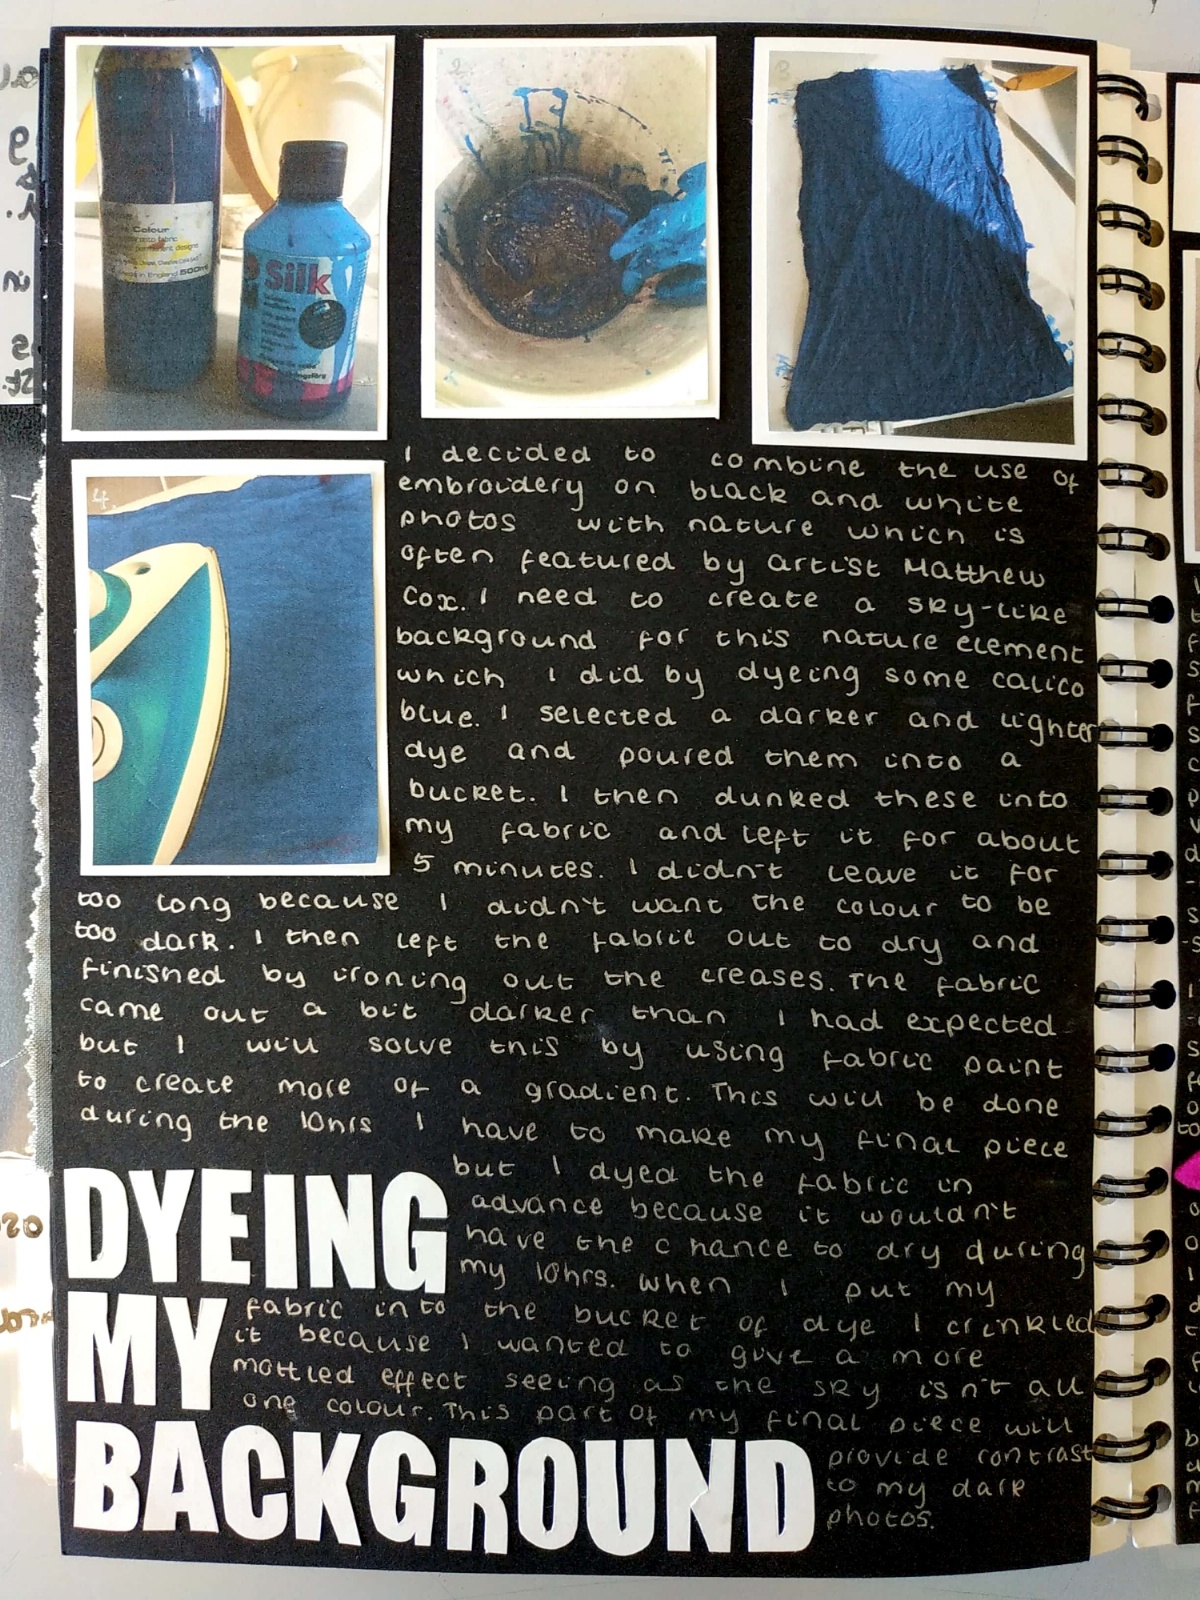 Colour
onto fabric
permanent designs
Made in England 500ml
Silk
2
3
4.
I decided to combine the use of
embroidery on black and white
photos with nature which is
often featured by artist Matthew
Cox. I need to create a sky-like
background for this nature element
which I did by dyeing some calico
blue. I selected a darker and lighter
dye and poured them into a
bucket. I then dunked these into
my fabric and left it for about
5 minutes. I didn't leave it for
too long because I didn't want the colour to be
too dark. I then left the fabric out to dry and
finished by ironing out the creases. The fabric
came out a bit darker than I had expected
but I will solve this by using fabric paint
to create more of a gradient. This will be done
during the 10hrs I have to make my final piece
but I dyed the fabric in
advance because it wouldn't
have the chance to dry during
my 10hrs. When I put my
fabric into the bucket of dye I crinkled
it because I wanted to give a more
mottled effect seeing as the sky isn't all
one colour. This part of my final piece will
provide contrast
to my dark
photos.
DYEING
MY
BACKGROUND